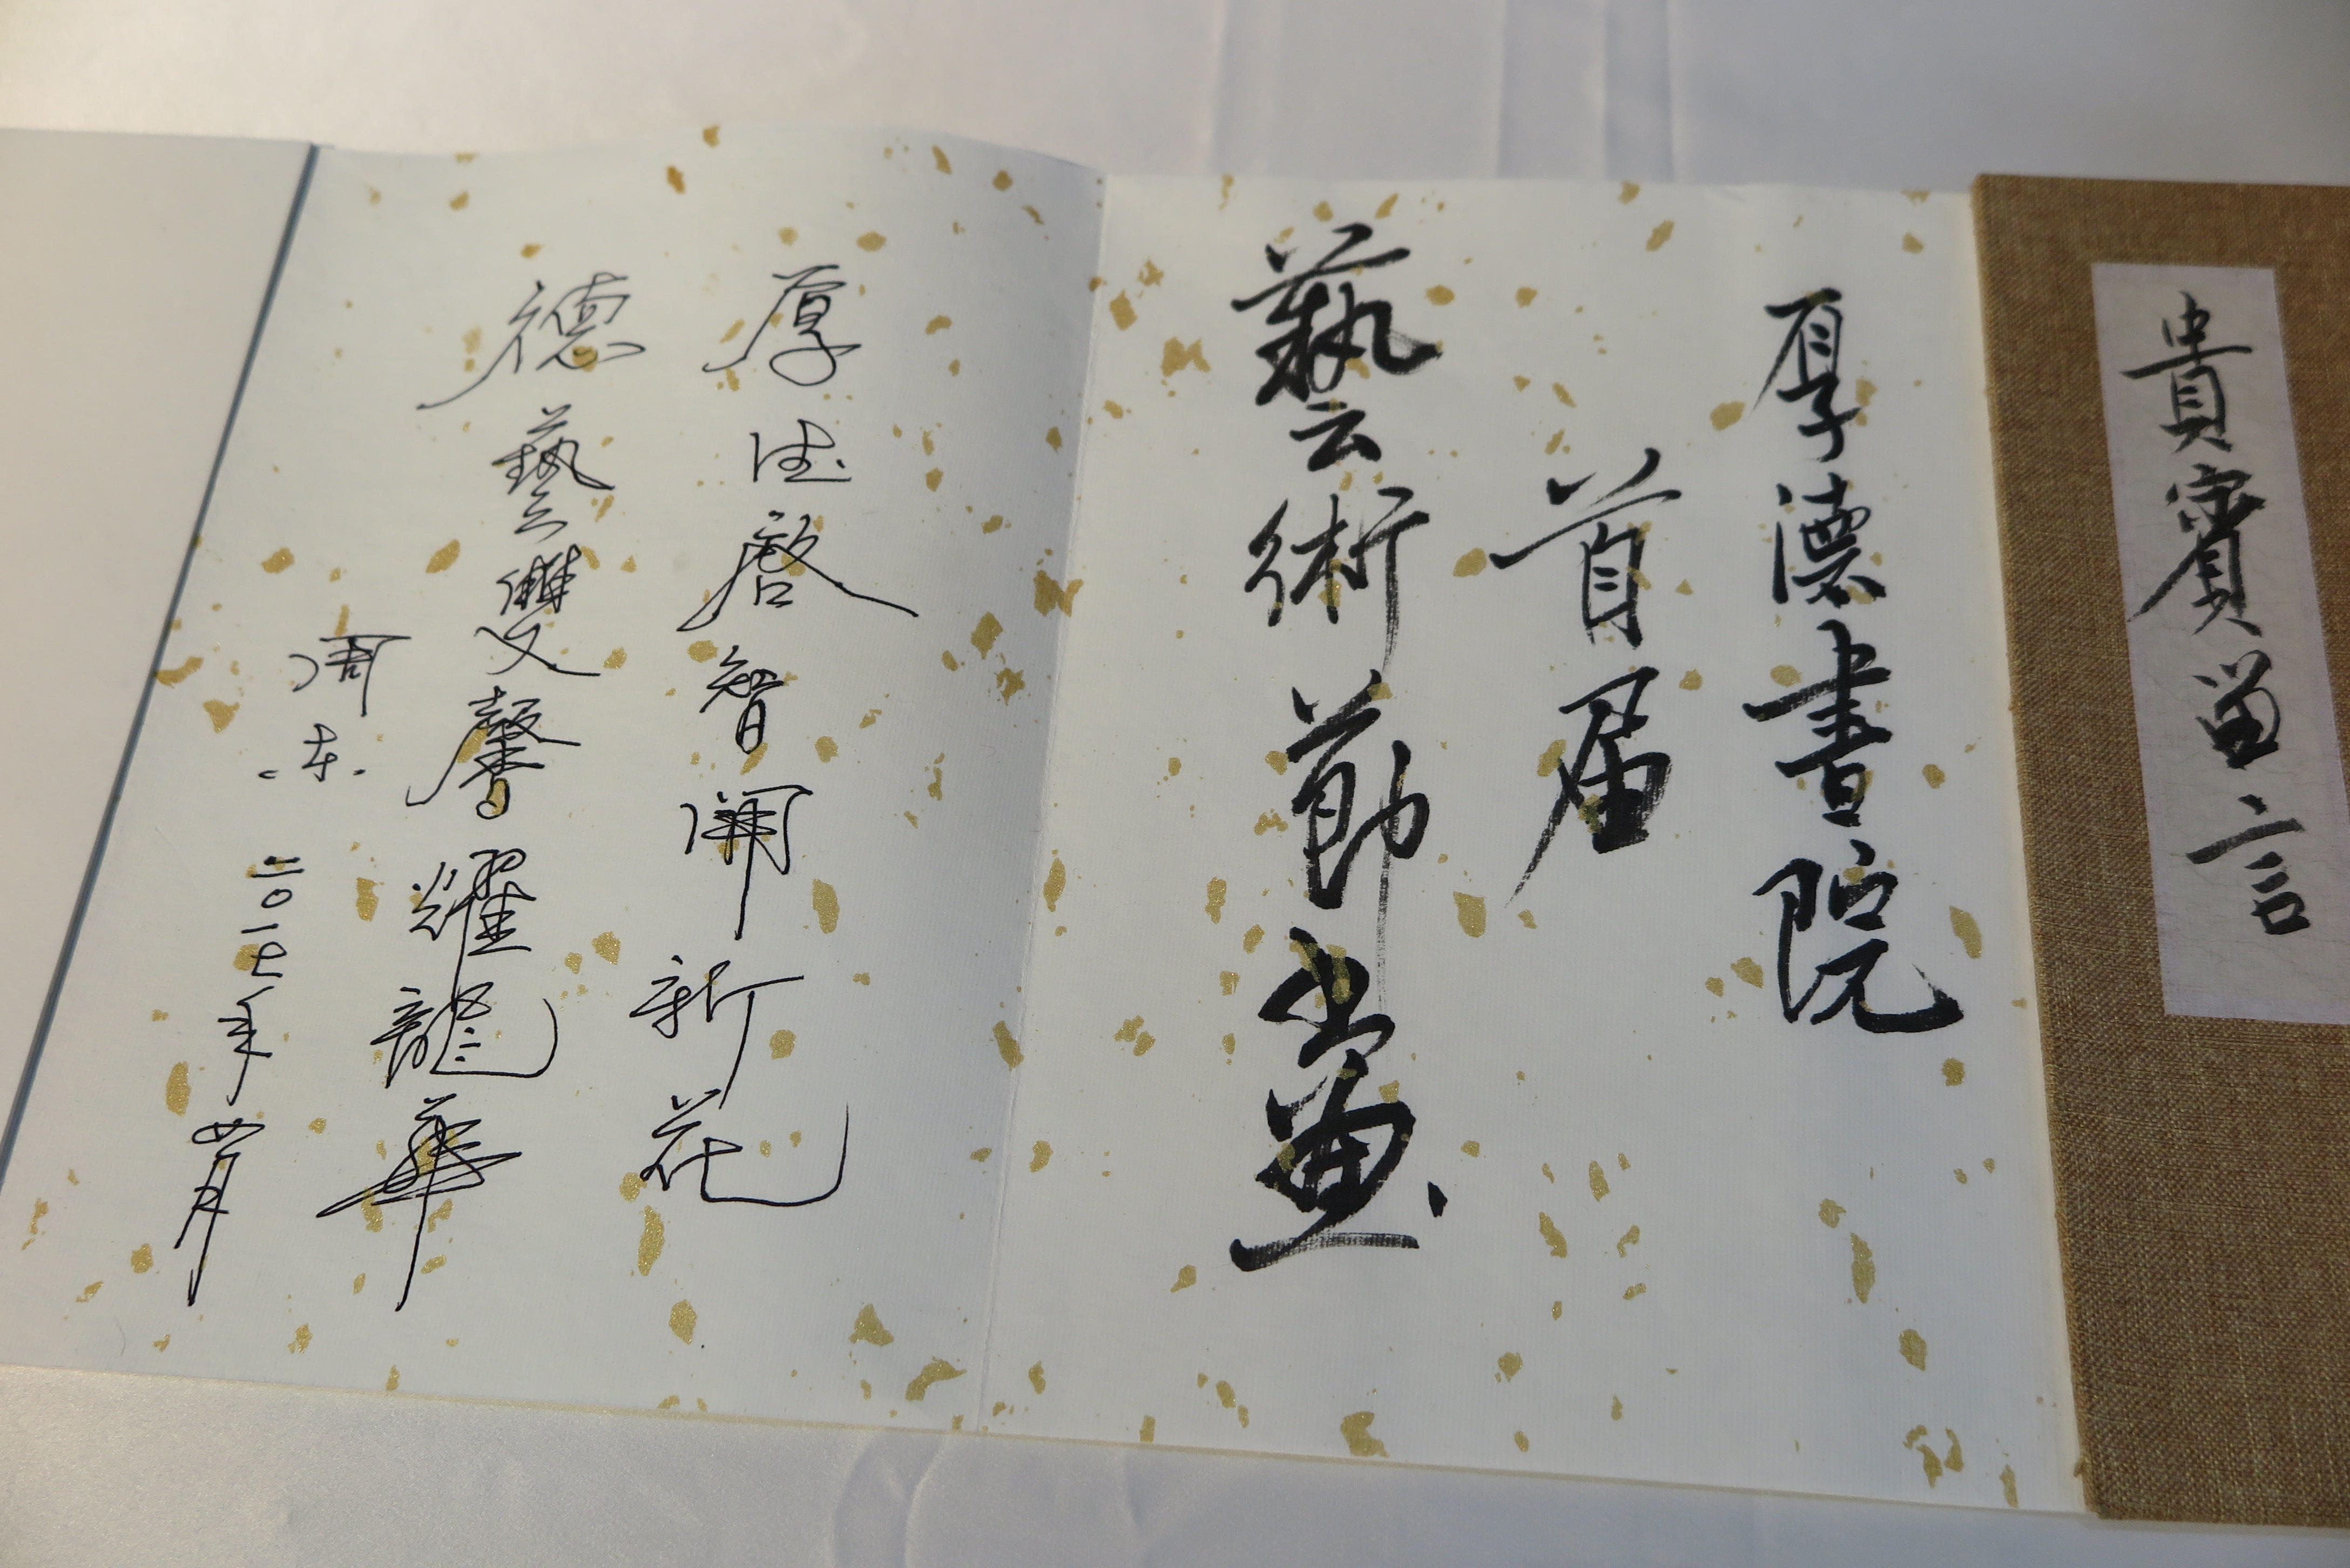 貴賓留言
厚德書院
首届
藝術節
厚德啓智開新花
德藝雙馨耀龍華
周东
二〇一七年四月